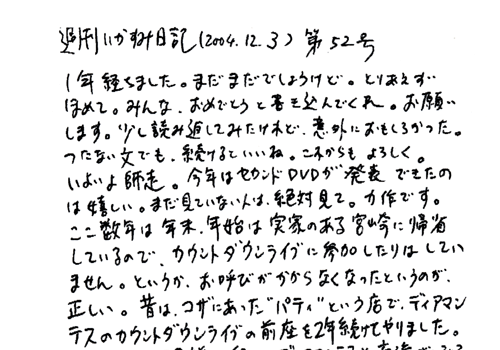 週刊いかすみ日記(2004.12.3) 第52号
1年経ちました。まだまだでしょうけど。とりあえず
ほめて。みんな、おめでとうと書き込んでくれ。お願い
します。少し読み返してみたけれど、意外におもしろかった。
つたない文でも、続けるといいね。これからもよろしく。
いよいよ師走。今年はセカンドDVDが発表できたの
は嬉しい。まだ見ていない人は、絶対見て。力作です。
ここ数年は年末、年始は実家のある宮崎に帰省
しているので、カウントダウンライブに参加したりはしてい
ません。というか、お呼びがかからなくなったというのが、
正しい。昔は、コザにあった"パティ"という店で、ディアマン
テスのカウントダウンライブの前座を2年続けてやりました。